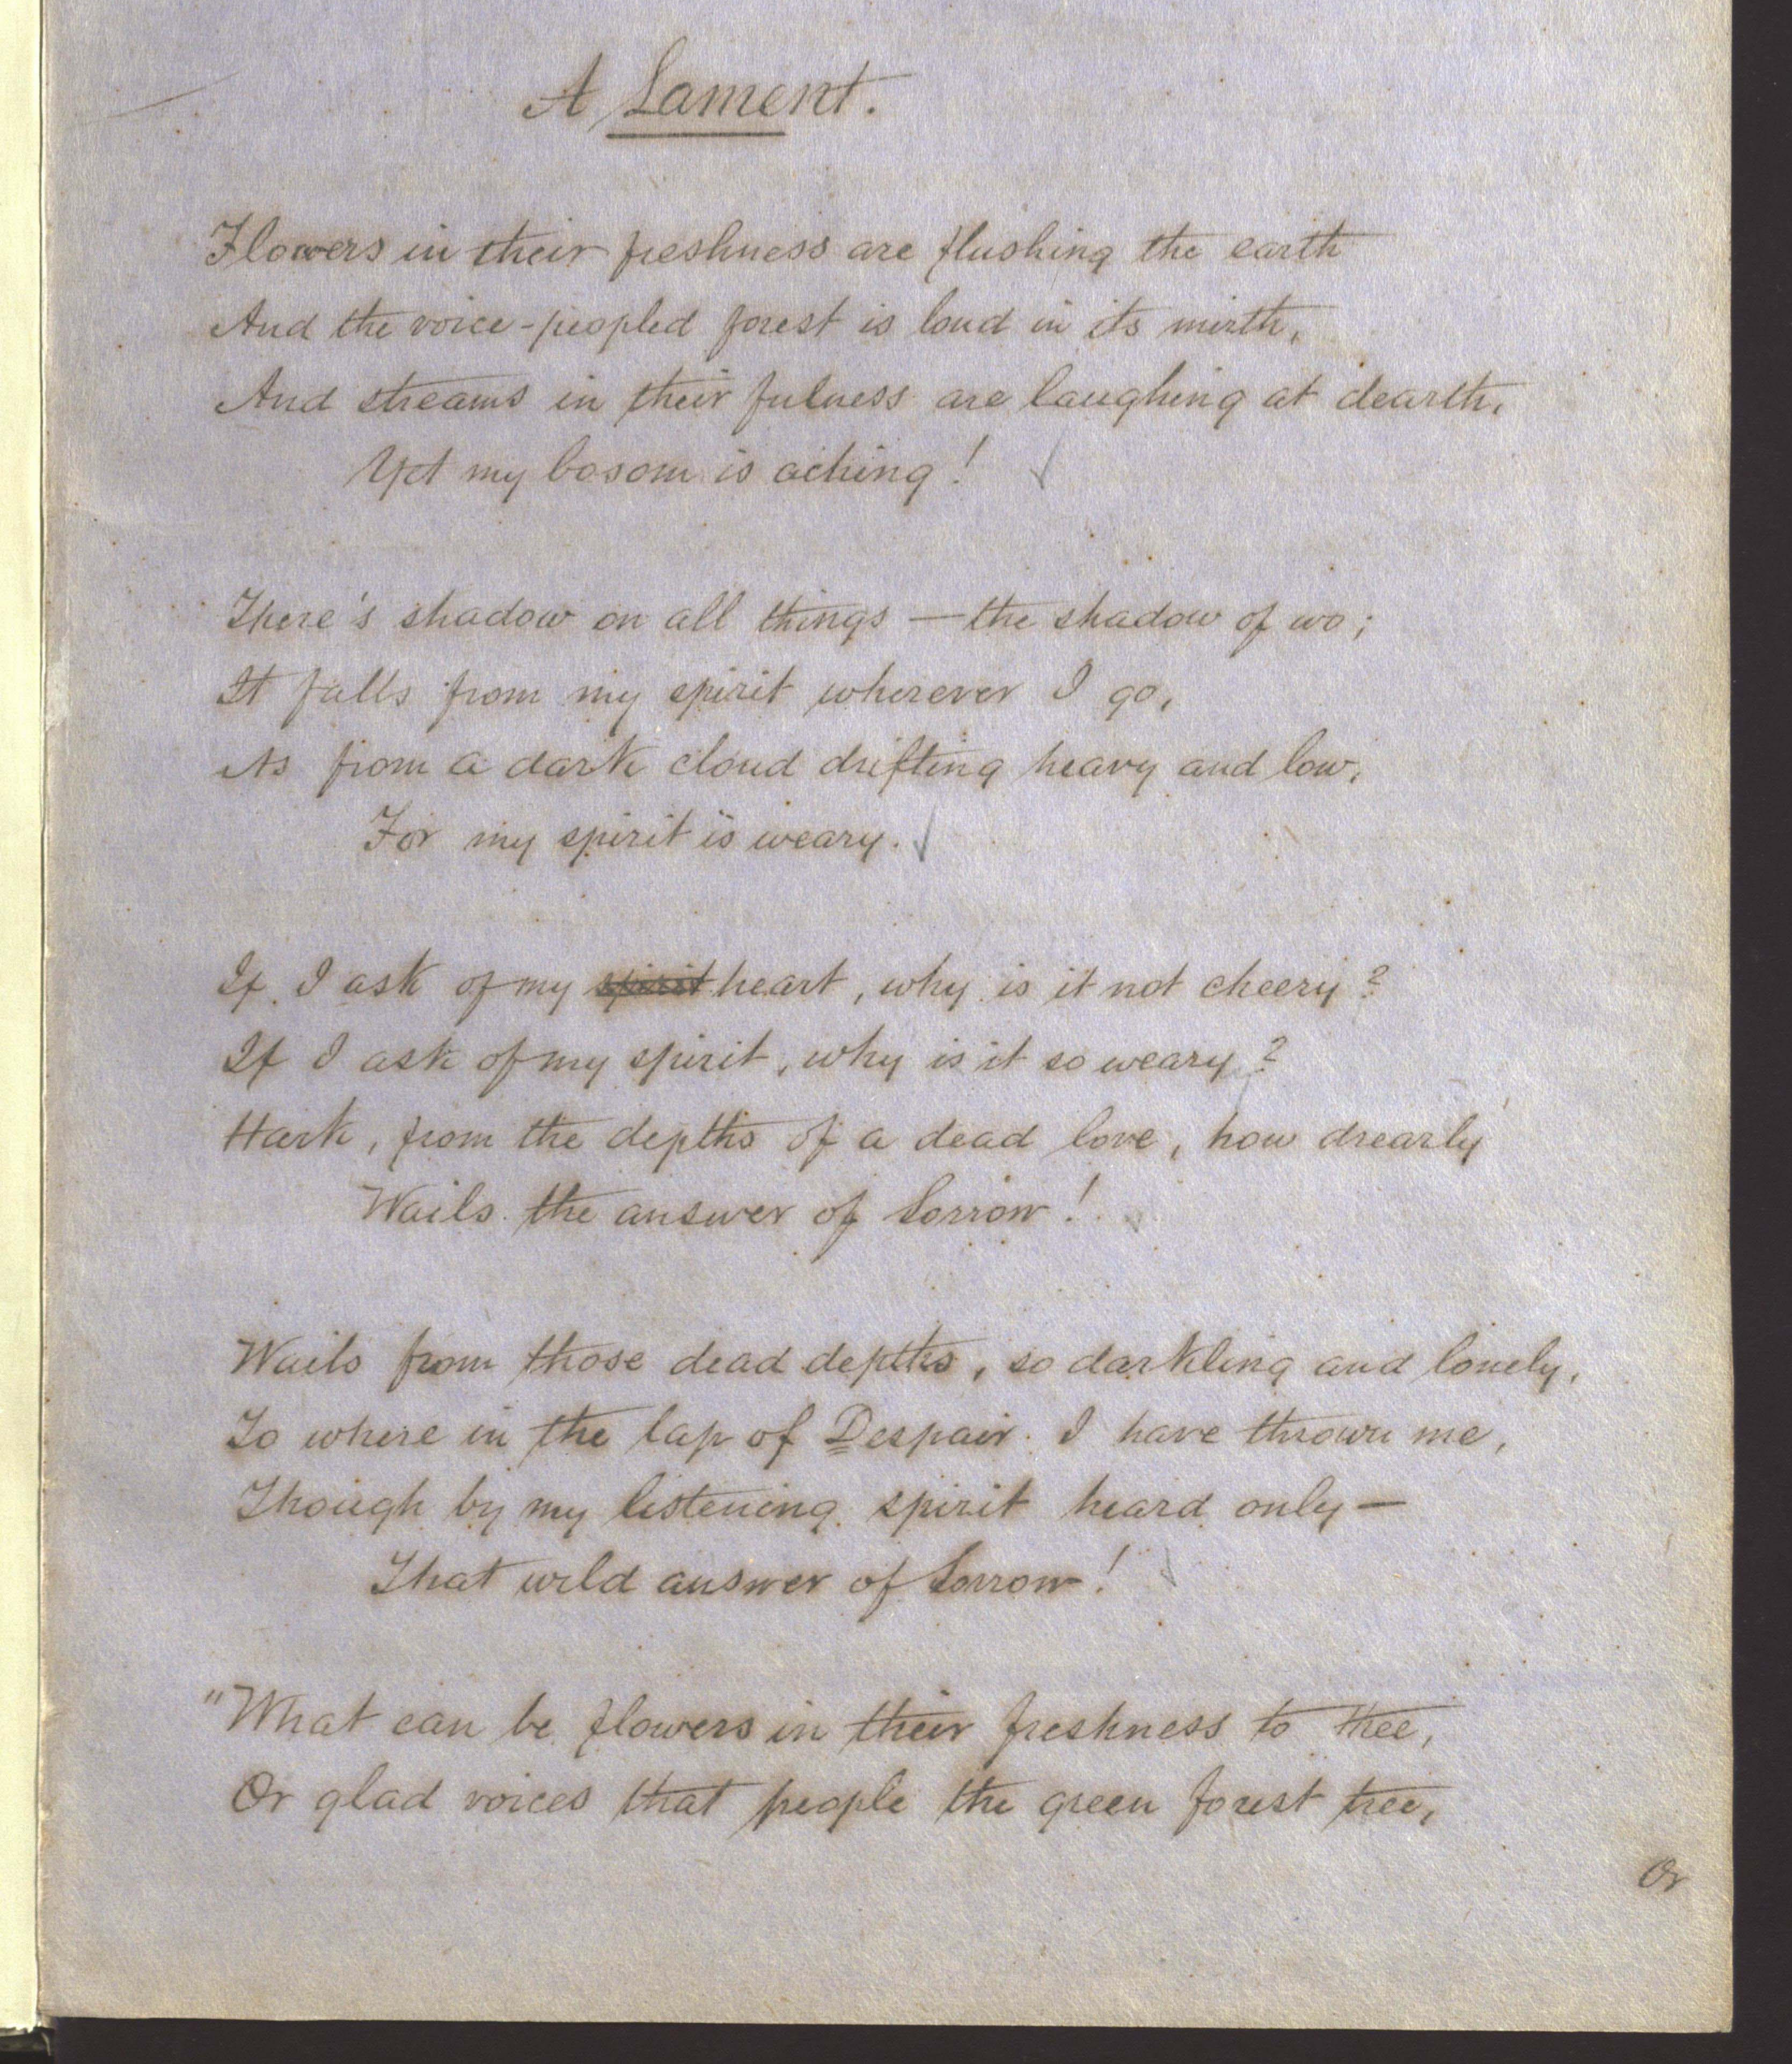 A Lament.
Flowers in their freshness are flushing the earth
And the voice-peopled forest is loud in its mirth,
And streams in their fulness are laughing at dearth,
Yet my bosom is aching!
There's shadow on all things — the shadow of wo;
It falls from my spirit wherever I go,
As from a dark cloud drifting heavy and low,
For my spirit is weary.
If I ask of my spirit heart, why is it not cheery?
If I ask of my spirit, why is it so weary?
Hark, from the depths of a dead love, how drearly
Wails the answer of Sorrow!
Wails from those dead depths, so darkling and lonely,
To where in the lap of Despair I have thrown me,
Though by my listening spirit heard only —
That wild answer of Sorrow!
"What can be flowers in their freshness to thee,
Or glad voices that people the green forest tree,
Or